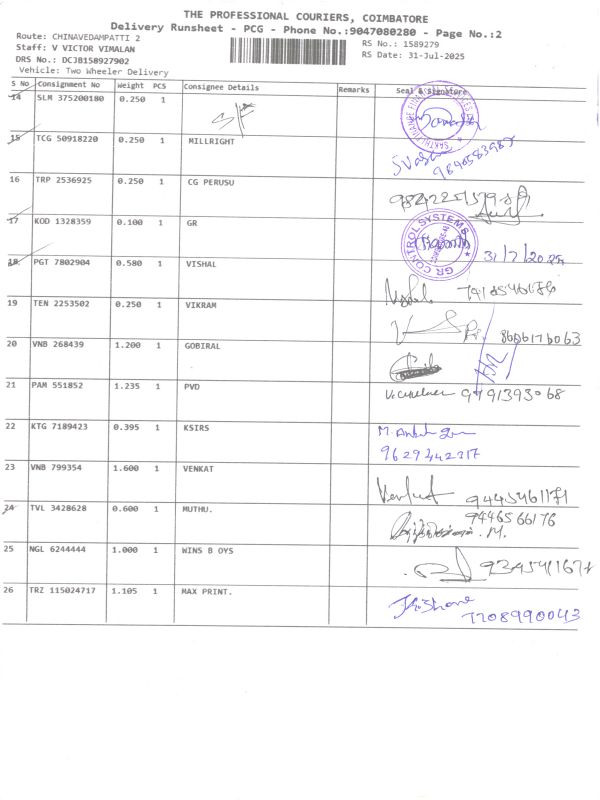 THE PROFESSIONAL COURIERS, COIMBATORE
Delivery Runsheet - PCG - Phone No.:9047080280 - Page No.:2
Route: CHINAVEDAMPATTI 2
Staff: V VICTOR VIMALAN
DRS No.: DCJB158927902
Vehicle: Two Wheeler Delivery
RS No.: 1589279
RS Date: 31-Jul-2025
S No Consignment No Weight PCS Consignee Details Remarks Seal & Signature
14 SLM 375200180 0.250 1
15 TCG 50918220 0.250 1 MILLRIGHT
16 TRP 2536925 0.250 1 CG PERUSU
17 KOD 1328359 0.100 1 GR
GR CONTROL SYSTEMS
31/7/2025
18 PGT 7802904 0.580 1 VISHAL
19 TEN 2253502 0.250 1 VIKRAM
8606176063
20 VNB 268439 1.200 1 GOBIRAL
21 PAM 551852 1.235 1 PVD
9791393068
22 KTG 7189423 0.395 1 KSIRS
9629442317
23 VNB 799354 1.600 1 VENKAT
Venkat 9445461171
24 TVL 3428628 0.600 1 MUTHU.
9446566176
25 NGL 6244444 1.000 1 WINS B OYS
26 TRZ 115024717 1.105 1 MAX PRINT.
7708990043